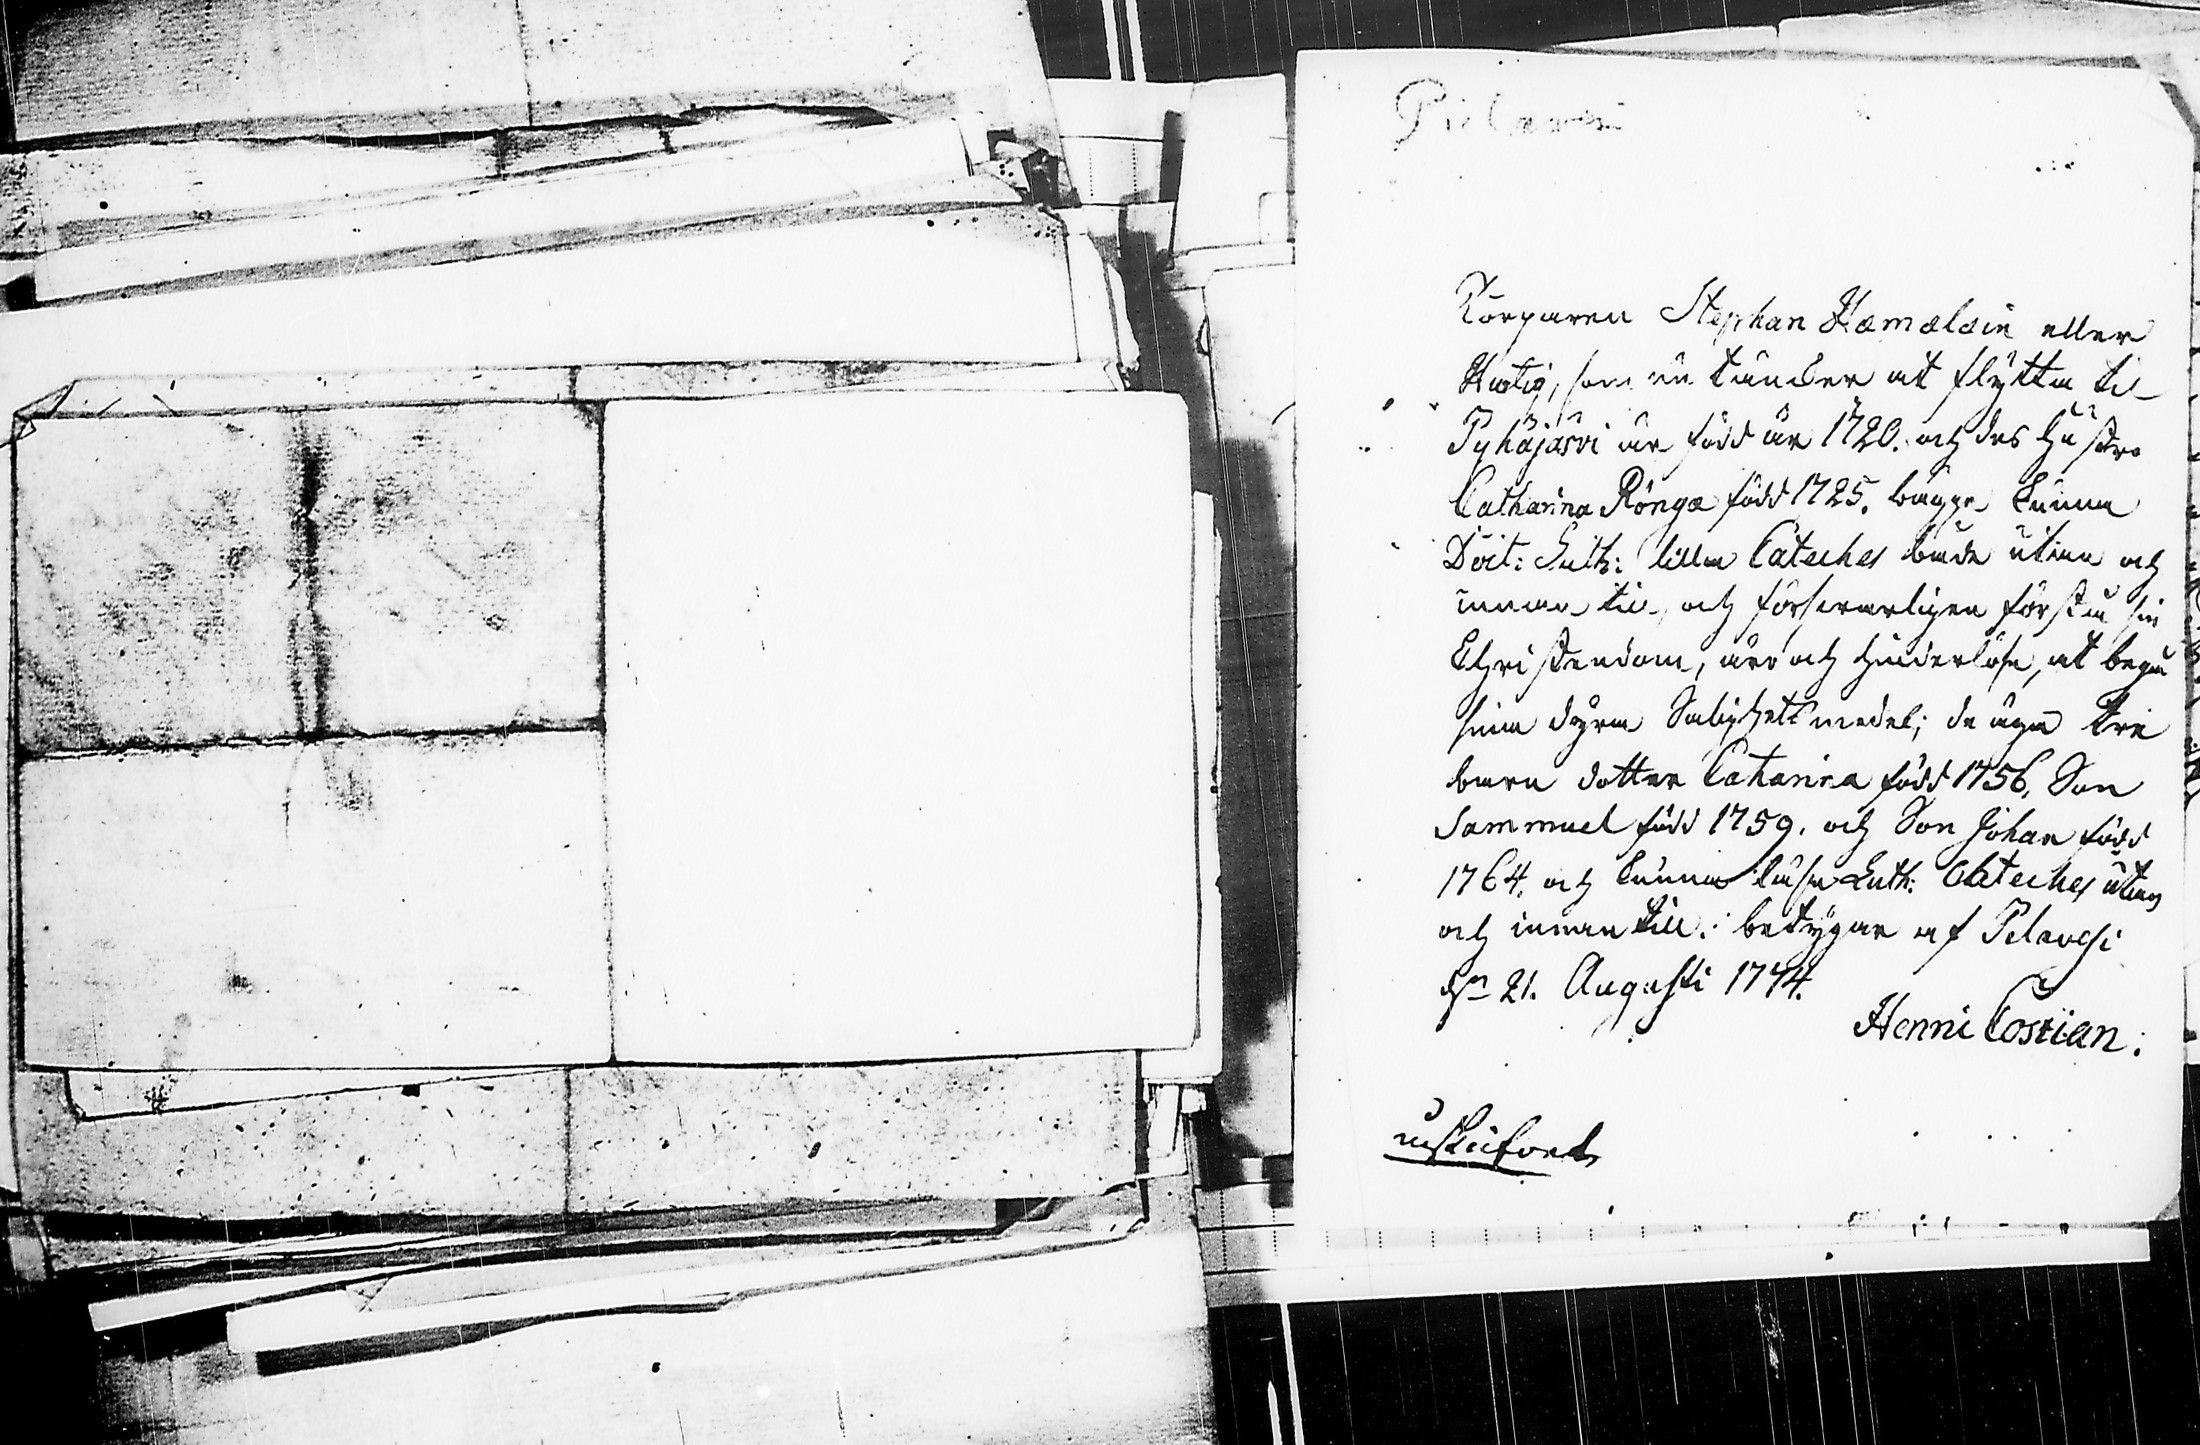 Pielavesi
Torparen Stephan Hämäläin eller
Hurtig, som nu täncker at flytta til
Pyhäjärvi är född år 1720. och des hustro
Catharina Rönga född 1725. bägge kunna
Doct: Luth: lilla Cateches både utan och
innan til, och försvarligen förstå sin
Christendom, äro och hinderlöse, at begå
sina dyra Salighets medel; de äga tre
barn dotter Catarina född 1756, Son
Sammuel född 1759. och Son Johan född
1764. och kunna läsa Luth: Cateches utan
och innan till: betygar af Pelavesi
d. 21. Augusti 1774.
Henric Costian.